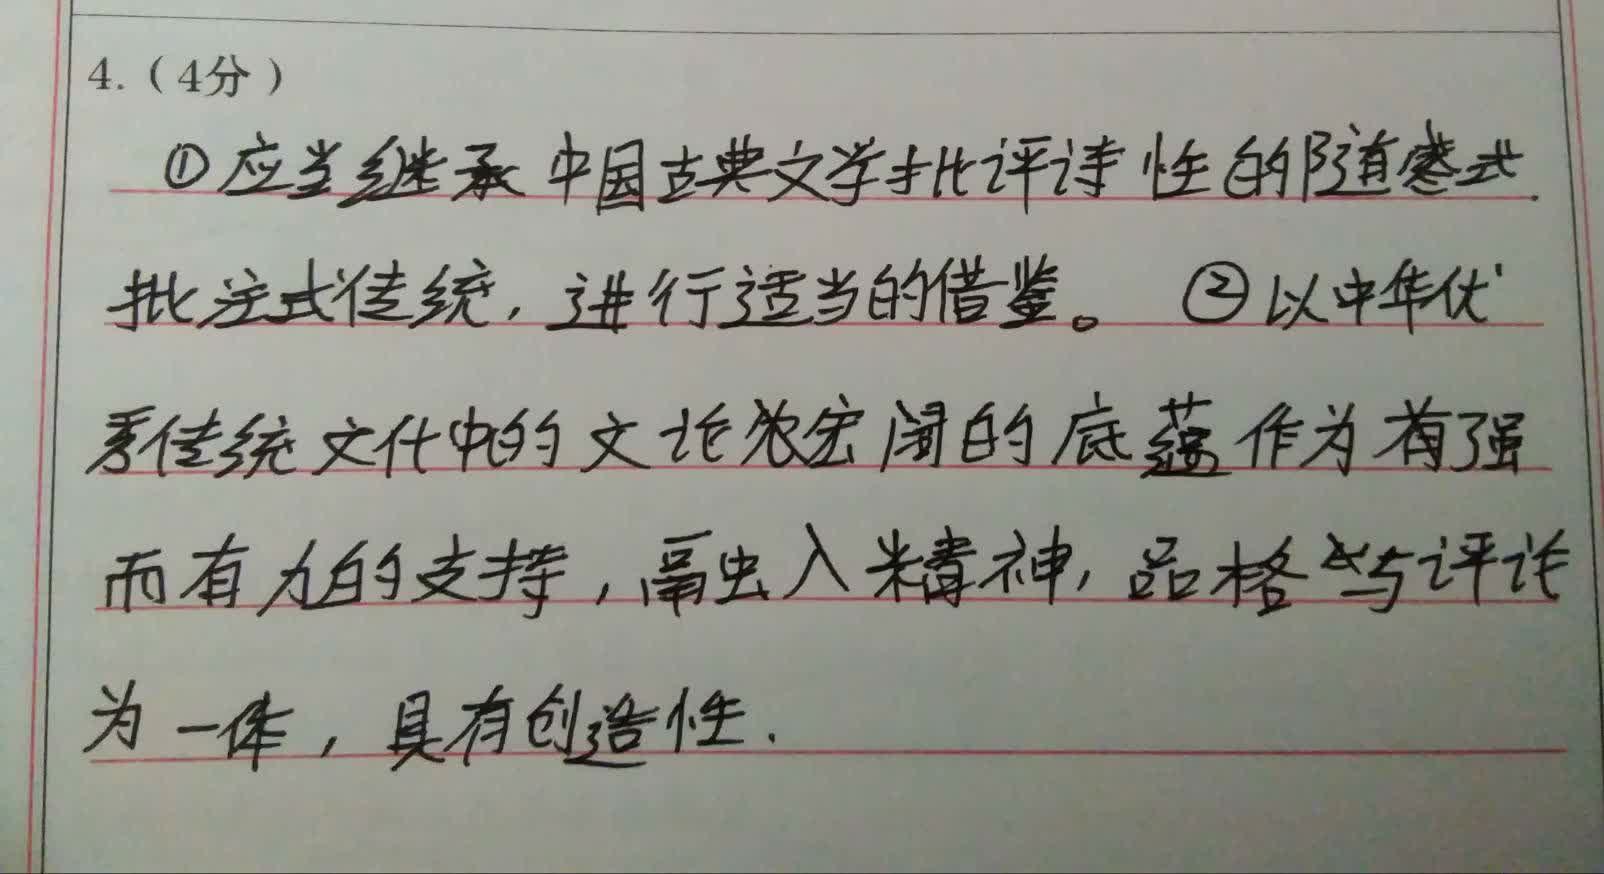 4.(4分)
①应当继承中国古典文学批评诗性的随感式.
批注式传统,进行适当的借鉴。 ②以中华优
秀传统文化中的文论宏阔的底蕴作为有强
而有力的支持,融入精神,品格与评论
为一体,具有创造性.